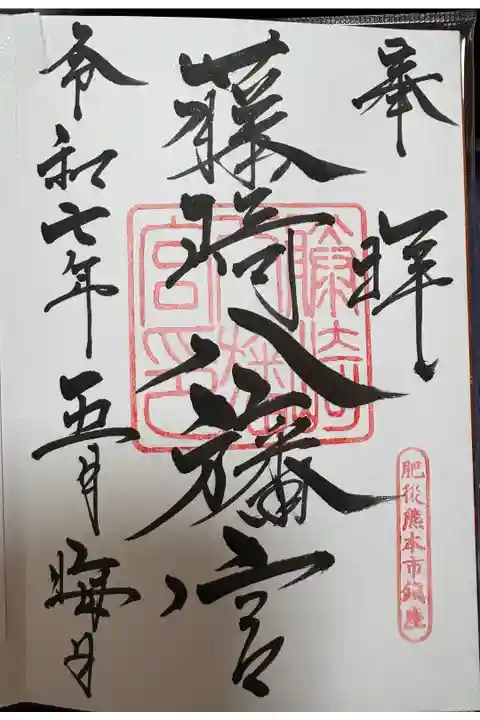 奉拝
肥後熊本市鎮座
藤崎八旛宮
藤崎
八旛
宮印
令和七年五月晦日